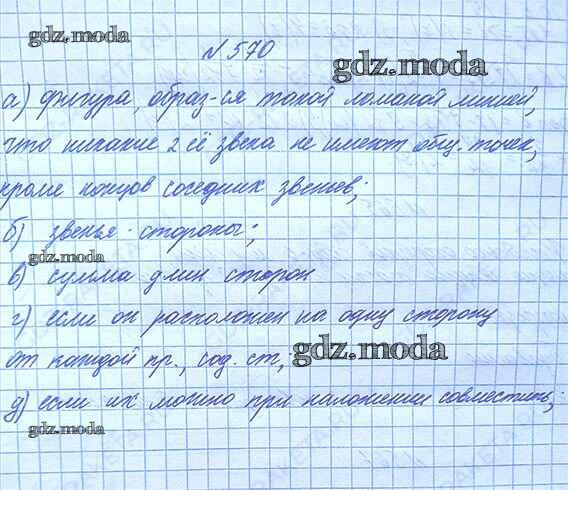 gdz.moda
N 570
gdz.moda
а) фигура, образ-ся такой ломаной линией,
что никакие 2 её звена не имеют общ. точек,
кроме концов соседних звеньев;
б) звенья - стороны;
gdz.moda
в) сумма длин сторон
г) если он расположен на одну сторону
от каждой пр., сод. ст;
gdz.moda
д) если их можно при наложении совместить;
gdz.moda